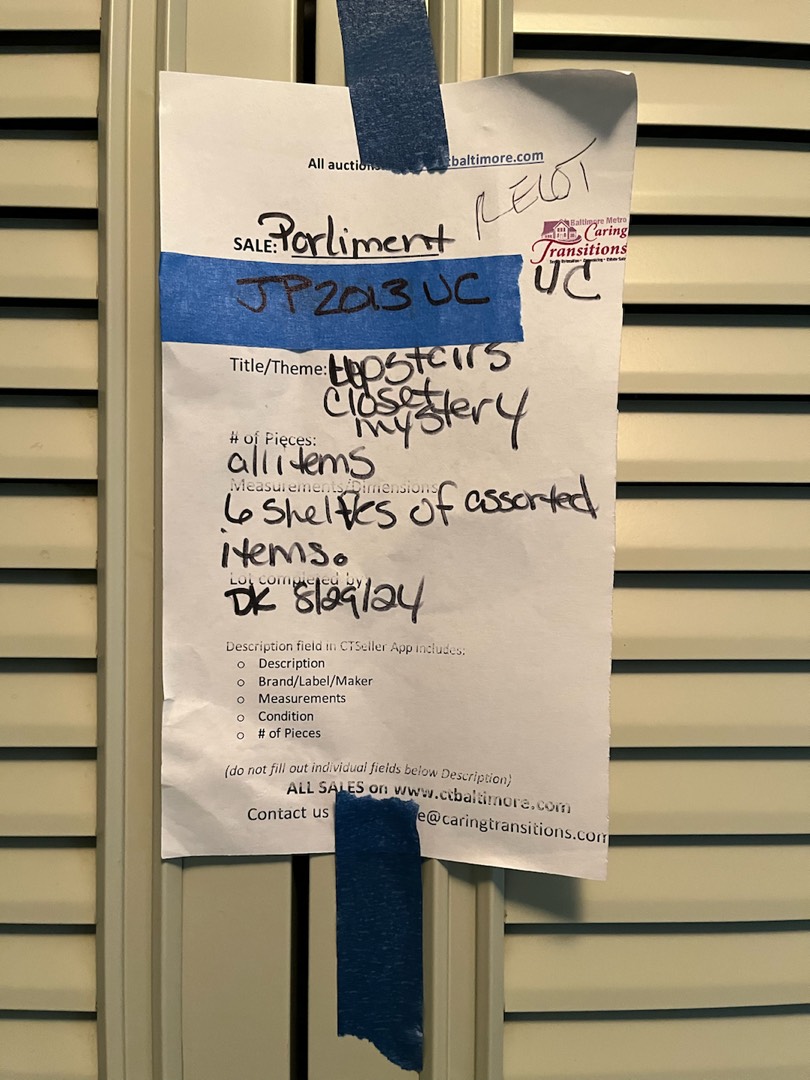 All auctio tbaltimore.com
RELOT
SALE: Parliment
Baltimore Metro
Caring
Transitions
JP2013 UC UC
Title/Theme: Upstairs
closet
mystery
# of Pieces:
all items
Measurements/Dimensions
6 shelves of assorted
items.
Lot completed by:
DK 8/29/24
Description field in CTSeller App includes:
o Description
o Brand/Label/Maker
o Measurements
o Condition
o # of Pieces
(do not fill out individual fields below Description)
ALL SALES on www.ctbaltimore.com
Contact us e@caringtransitions.com